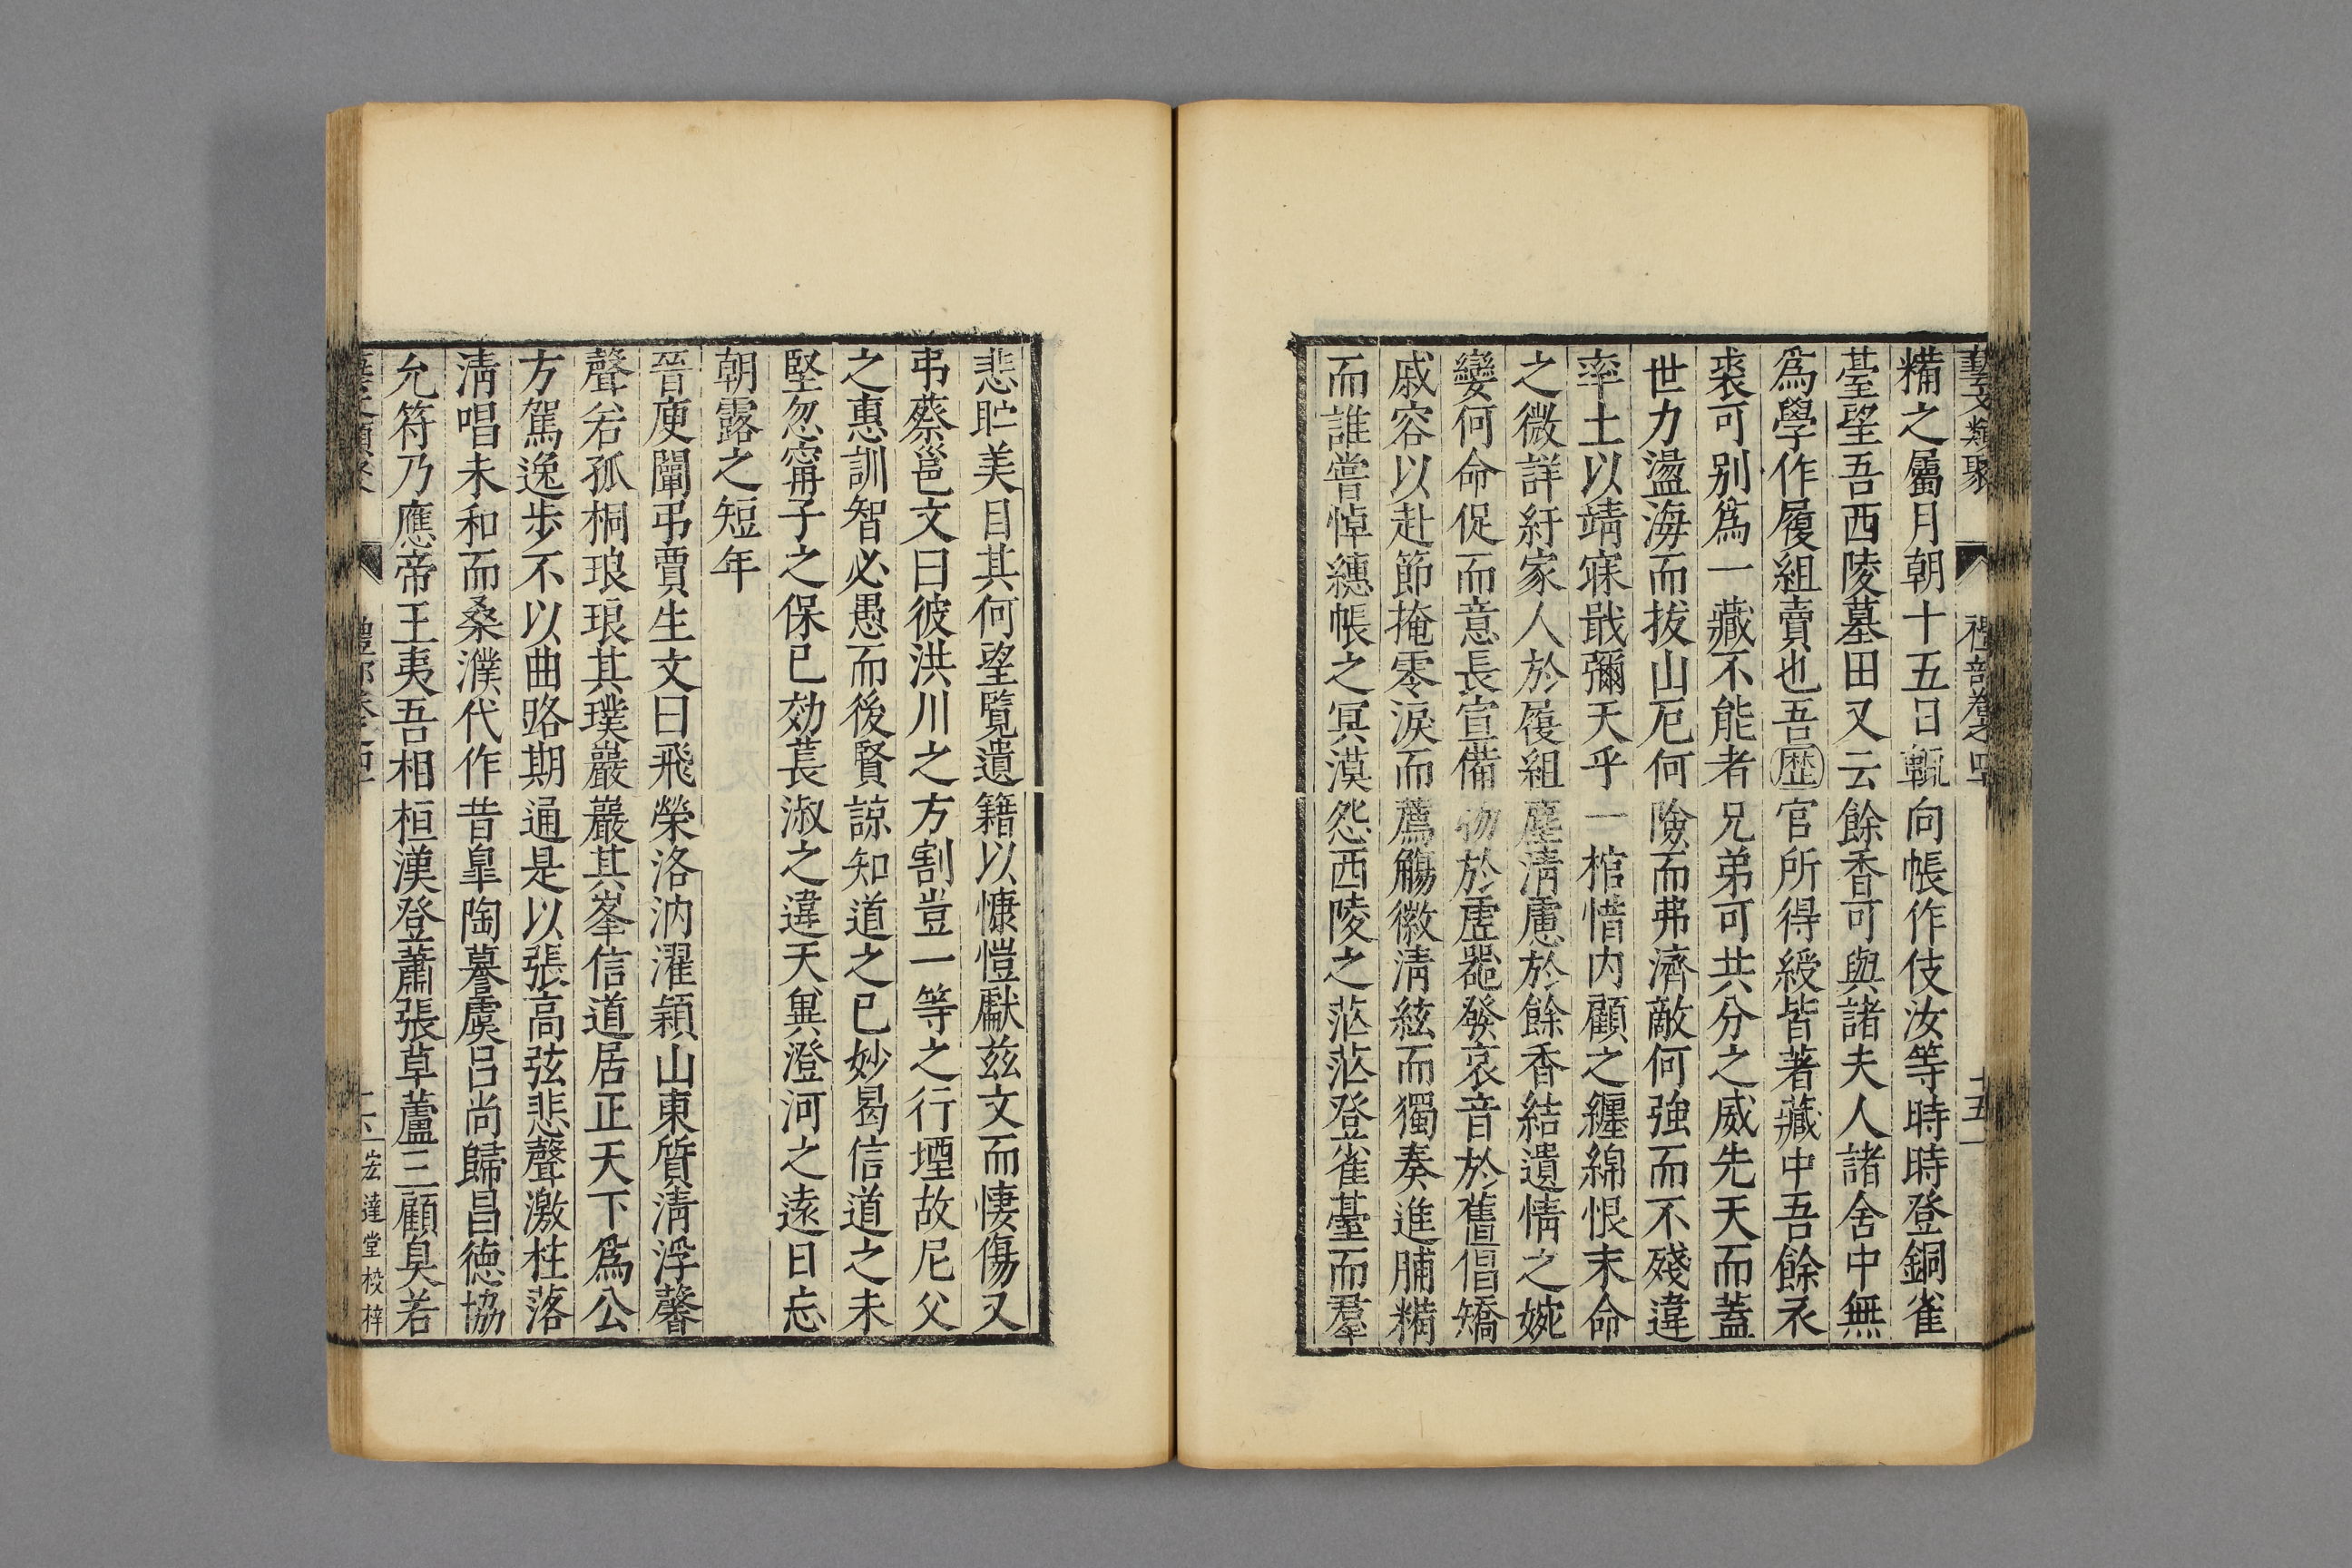 藝文類聚 禮部卷之四 十五
糒之屬月朝十五日輒向帳作伎汝等時時登銅雀
臺望吾西陵墓田又云餘香可與諸夫人諸舍中無
爲學作履組賣也吾歷官所得綬皆著藏中吾餘衣
裘可别爲一藏不能者兄弟可共分之威先天而蓋
世力盪海而拔山厄何險而弗濟敵何強而不殘違
率土以靖寐戢彌天乎一棺惜内顧之纏綿恨末命
之微詳紆家人於履組塵淸慮於餘香結遺情之婉
孌何命促而意長宣備物於虛器發哀音於舊倡矯
戚容以赴節掩零淚而薦觴徽淸絃而獨奏進脯糒
而誰嘗悼繐帳之冥漠怨西陵之茫茫登雀臺而羣
悲眝美目其何望覽遺籍以慷愷獻兹文而悽傷又
弔蔡邕文曰彼洪川之方割豈一等之行堙故尼父
之惠訓智必愚而後賢諒知道之已妙曷信道之未
堅忽甯子之保已効萇淑之違天兾澄河之遠日忘
朝露之短年
晉庾闡弔賈生文曰飛榮洛汭濯穎山東質淸浮磬
聲若孤桐琅琅其璞巖巖其峯信道居正天下爲公
方駕逸步不以曲路期通是以張高弦悲聲激柱落
淸唱未和而桑濮代作昔臯陶謩虞吕尚歸昌德協
允符乃應帝王夷吾相桓漢登蕭張草蘆三顧臭若
藝文類聚 禮部卷之四 十六 宏達堂校梓